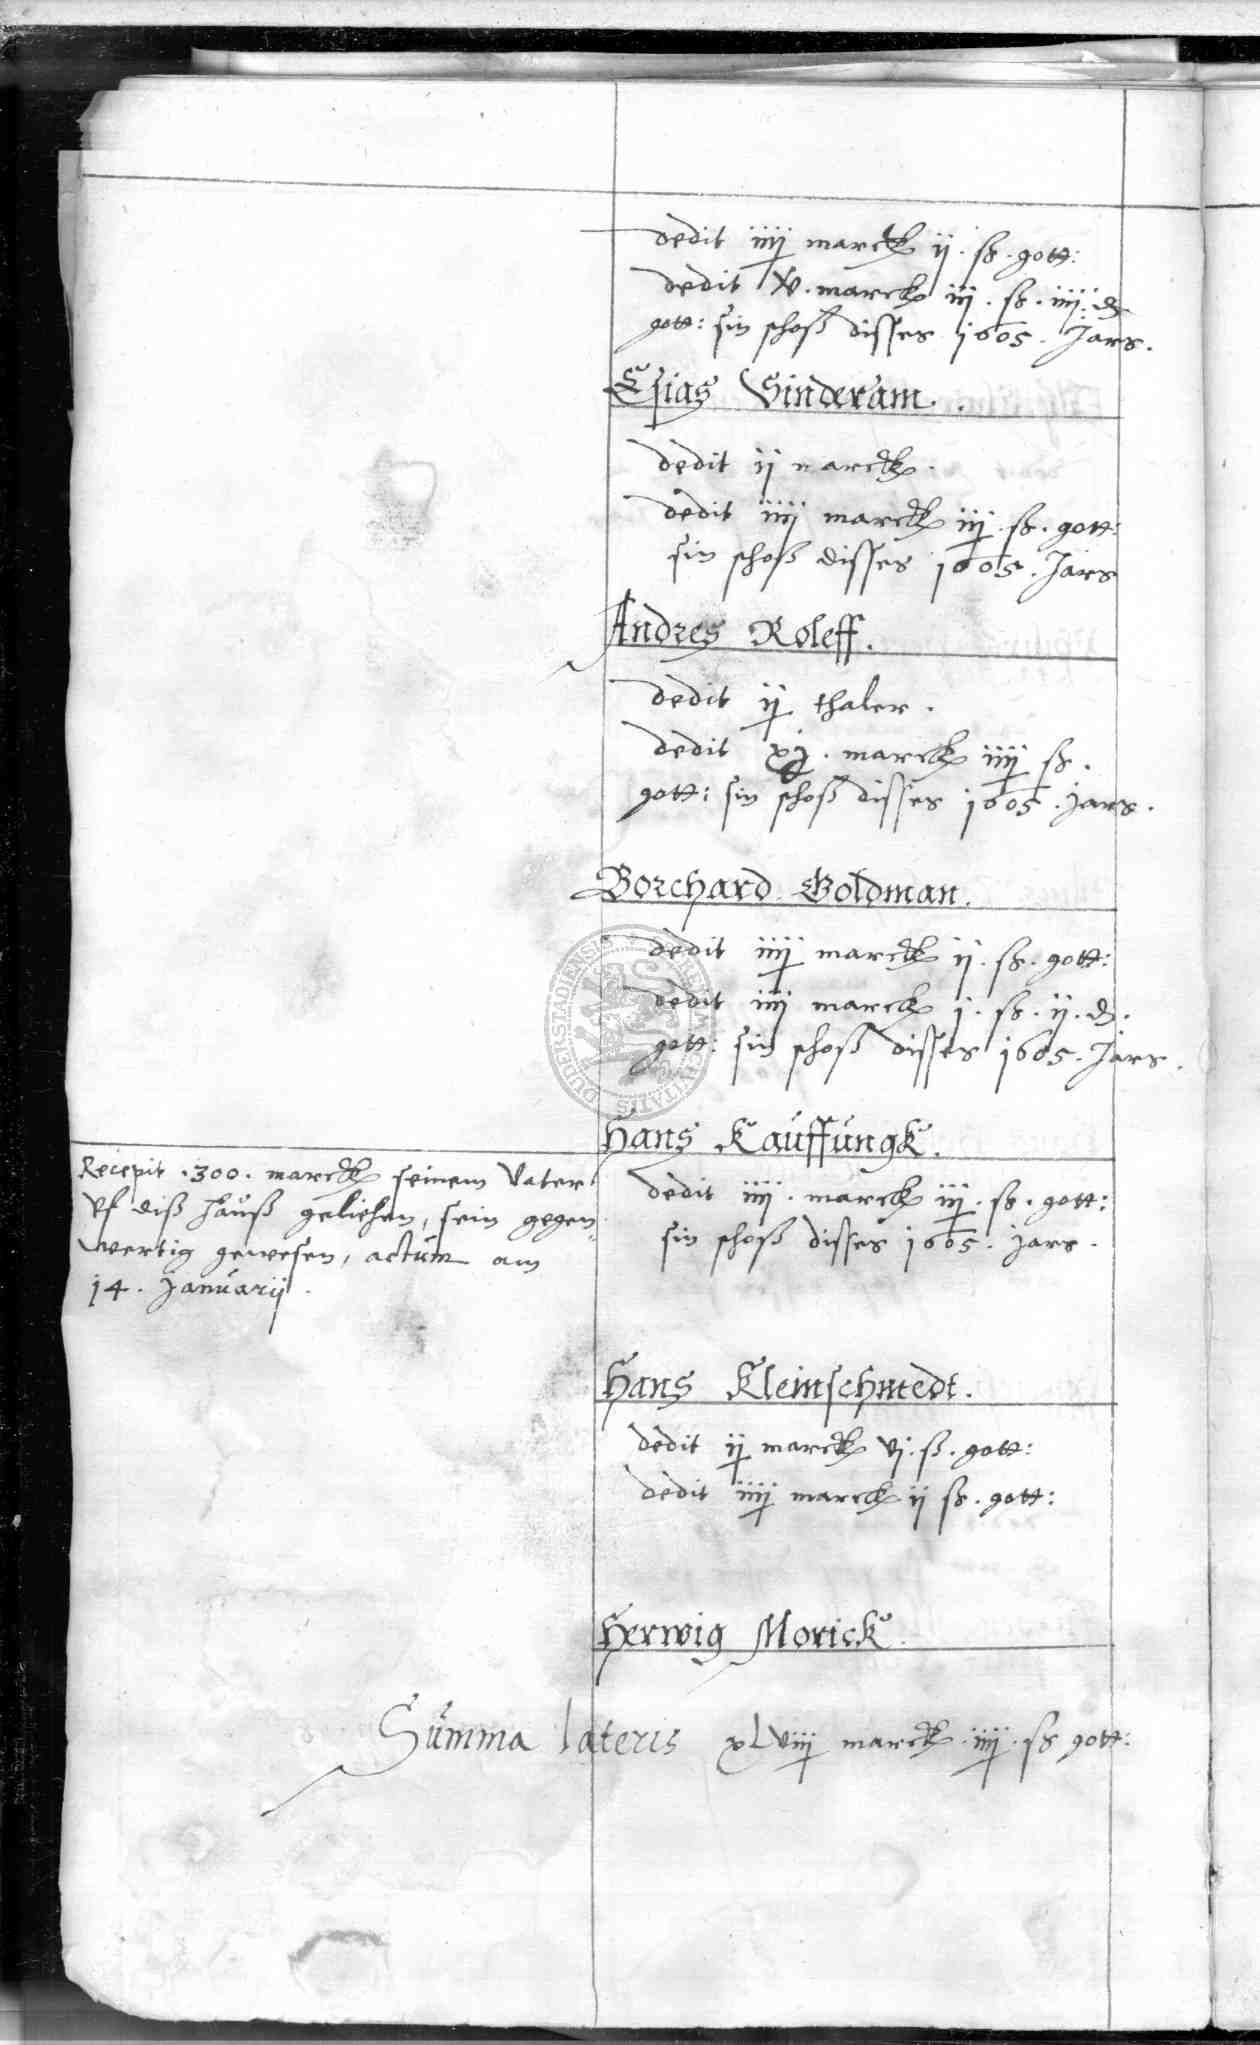 dedit iiij marck ij. ß. gott:
dedit v. marck iij. ß. iiij. d
gott: sin schoß disses 1605. Jars.
Esias Sinderam.
dedit ij marck.
dedit iiij marck iij. ß. gott:
sin schoß disses 1605. Jars
Andres Roleff.
dedit ij thaler.
dedit xj. marck iiij ß.
gott: sin schoß disses 1605. Jars.
Borchard Goldman.
dedit iiij marck ij. ß. gott:
dedit iiij marck j. ß. ij. d.
gott: sin schoß disses 1605. Jars.
Hans Kauffungk.
Recepit .300. marck seinem Vater
vf diß hauß geliehen, sein gegen
wertig gewesen, actum am
14. Januarij.
dedit iiij. marck iij. ß. gott:
sin schoß disses 1605. Jars.
Hans Kleinschmedt.
dedit ij marck vj. ß. gott:
dedit iiij marck ij ß. gott:
Herwig Morick
Summa lateris xLviij marck. iiij. ß gott:
DUDERSTADIENSIS
CIVITATIS